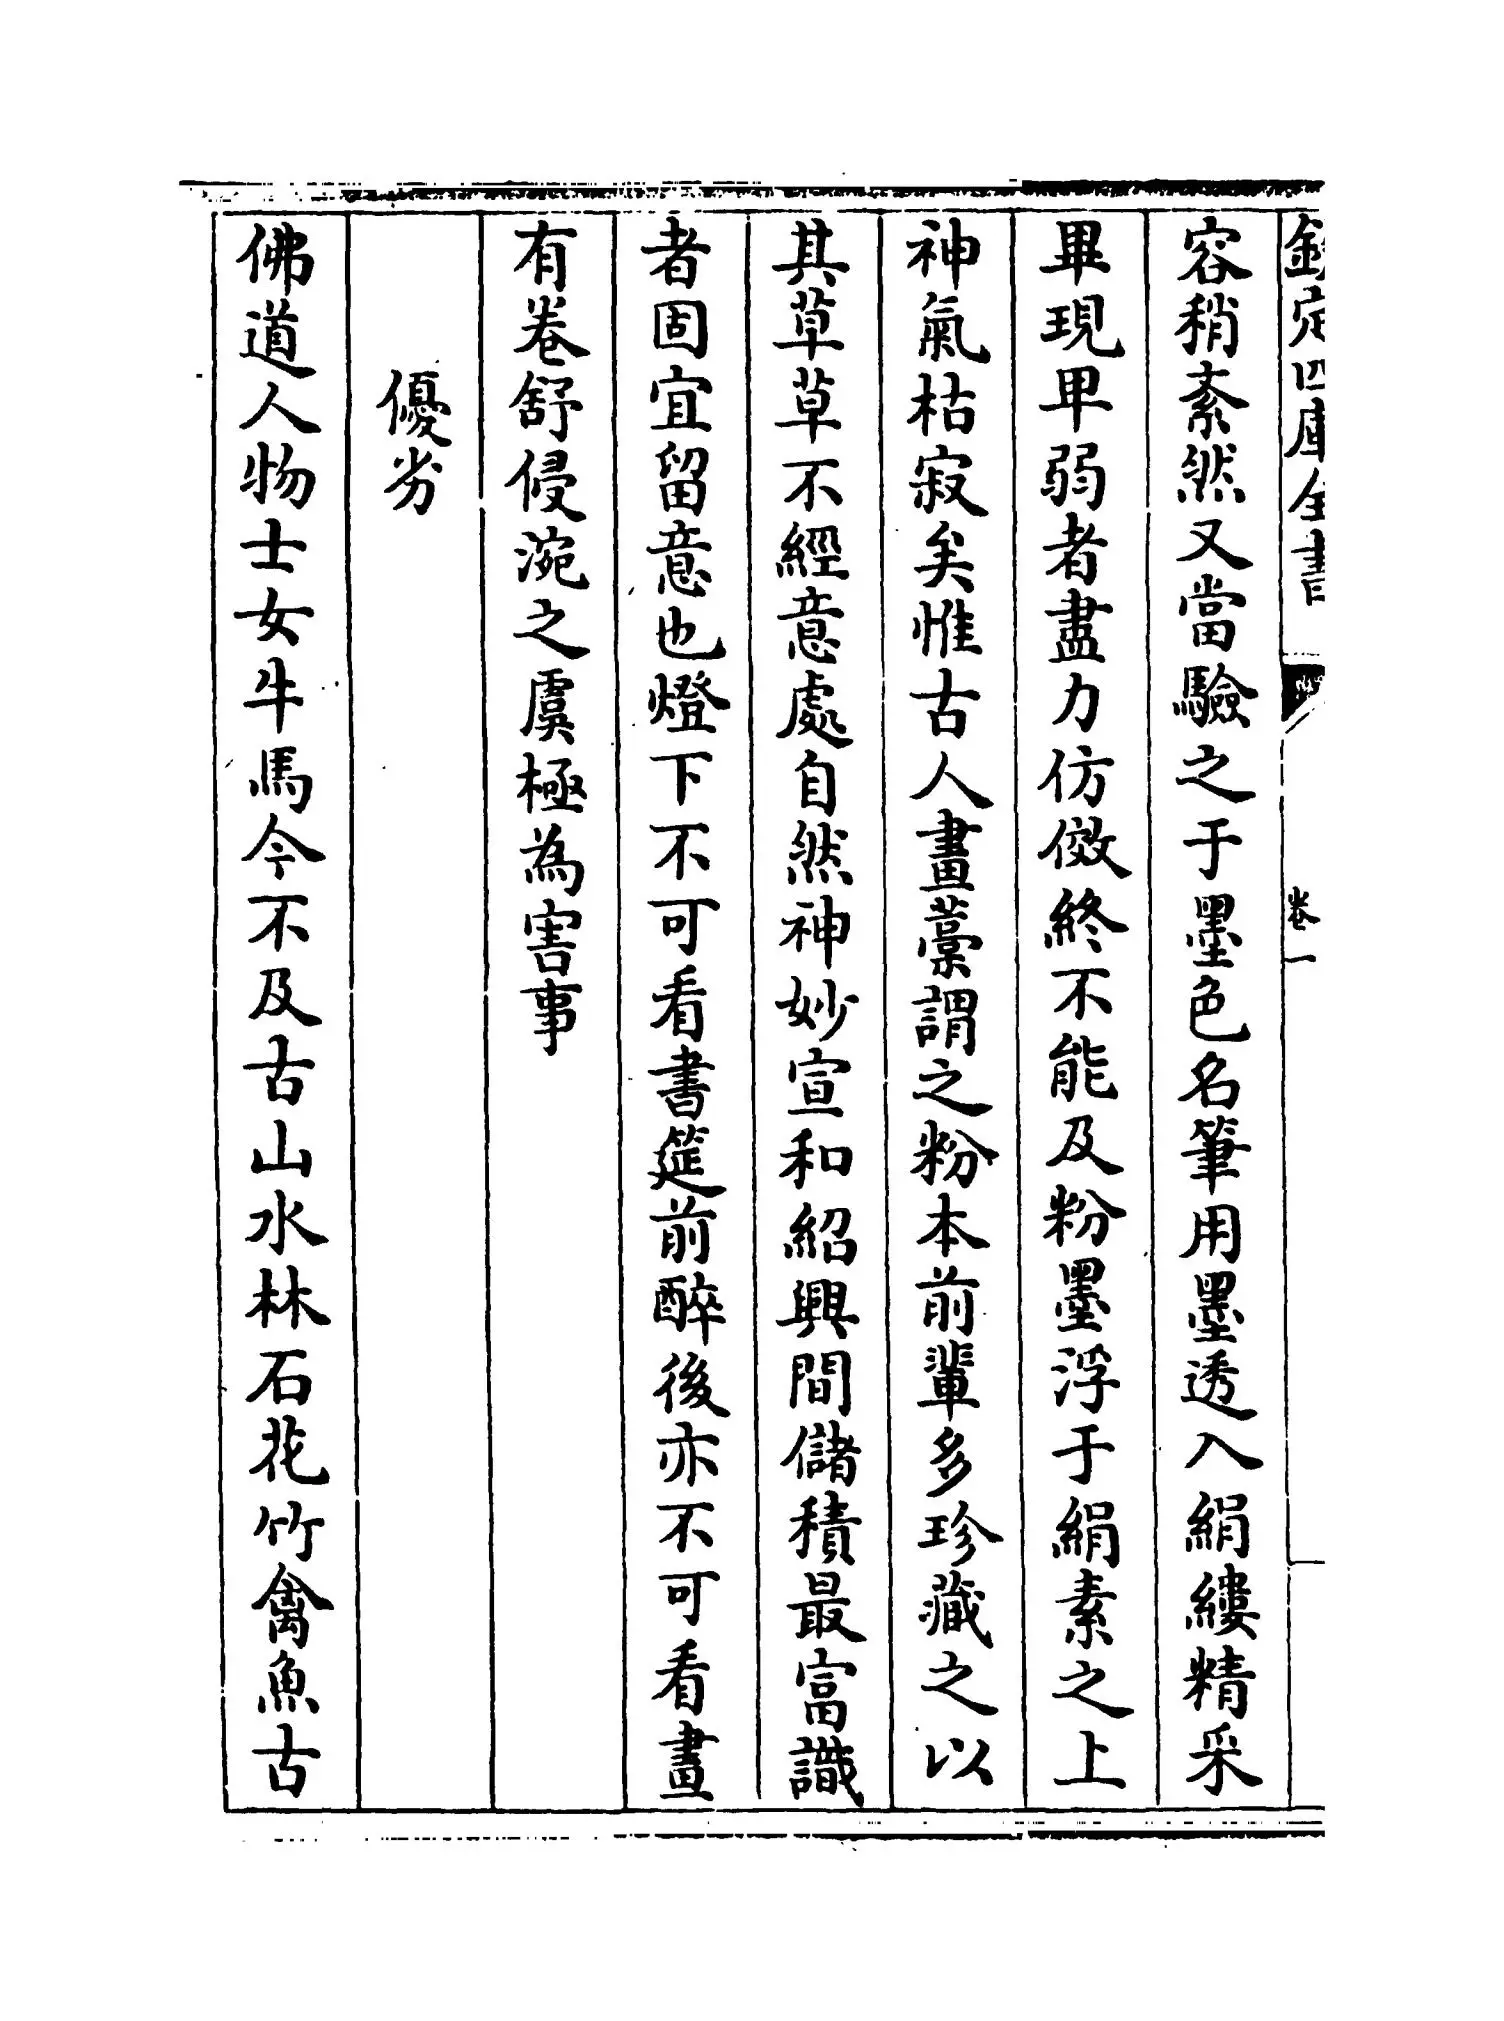 欽定四庫全書
卷一
容稍紊然又當驗之于墨色名筆用墨透入絹縷精采
畢現甲弱者盡力仿傚終不能及粉墨浮于絹素之上
神氣枯寂矣惟古人畫藁謂之粉本前輩多珍藏之以
其草草不經意處自然神妙宣和紹興間儲積最富識
者固宜留意也燈下不可看書筵前醉後亦不可看畫
有卷舒侵涴之虞極為害事
優劣
佛道人物士女牛馬今不及古山水林石花竹禽魚古